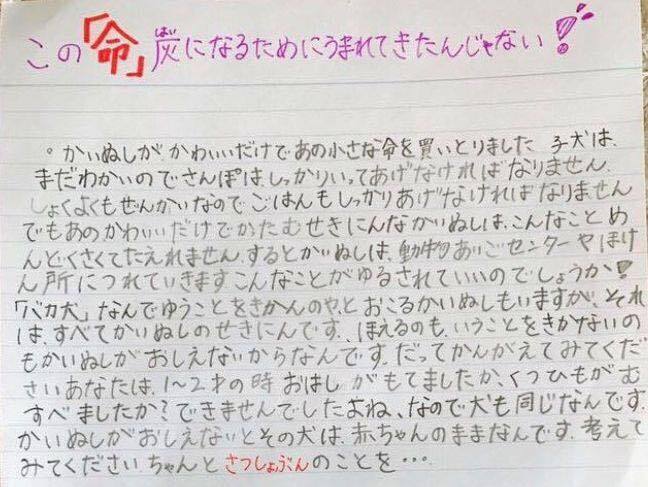 この「命」炭になるためにうまれてきたんじゃない!
。かいぬしが、かわいいだけであの小さな命を買いとりました 子犬は、
まだわかいのでさんぽは、しっかりいってあげなければなりません、
しょくよくもぜんかいなのでごはんもしっかりあげなければなりません
でもあのかわいいだけでかたむせきにんなかいぬしは、こんなことめ
んどくさくてたえれません、するとかいぬしは、動物あいごセンターやほけ
ん所につれていきますこんなことがゆるされていいのでしょうか!
「バカ犬」なんでゆうことをきかんのや、とおこるかいぬしもいますが、それ
は、すべてかいぬしのせきにんです、ほえるのも、いうことをきかないの
もかいぬしがおしえないからなんです、だってかんがえてみてくだ
さいあなたは、1〜2才の時おはしがもてましたか、くつひもがむ
すべましたか?できませんでしたよね、なので犬も同じなんです、
かいぬしがおしえないとその犬は、赤ちゃんのままなんです、考えて
みてくださいちゃんとさつしょぶんのことを…